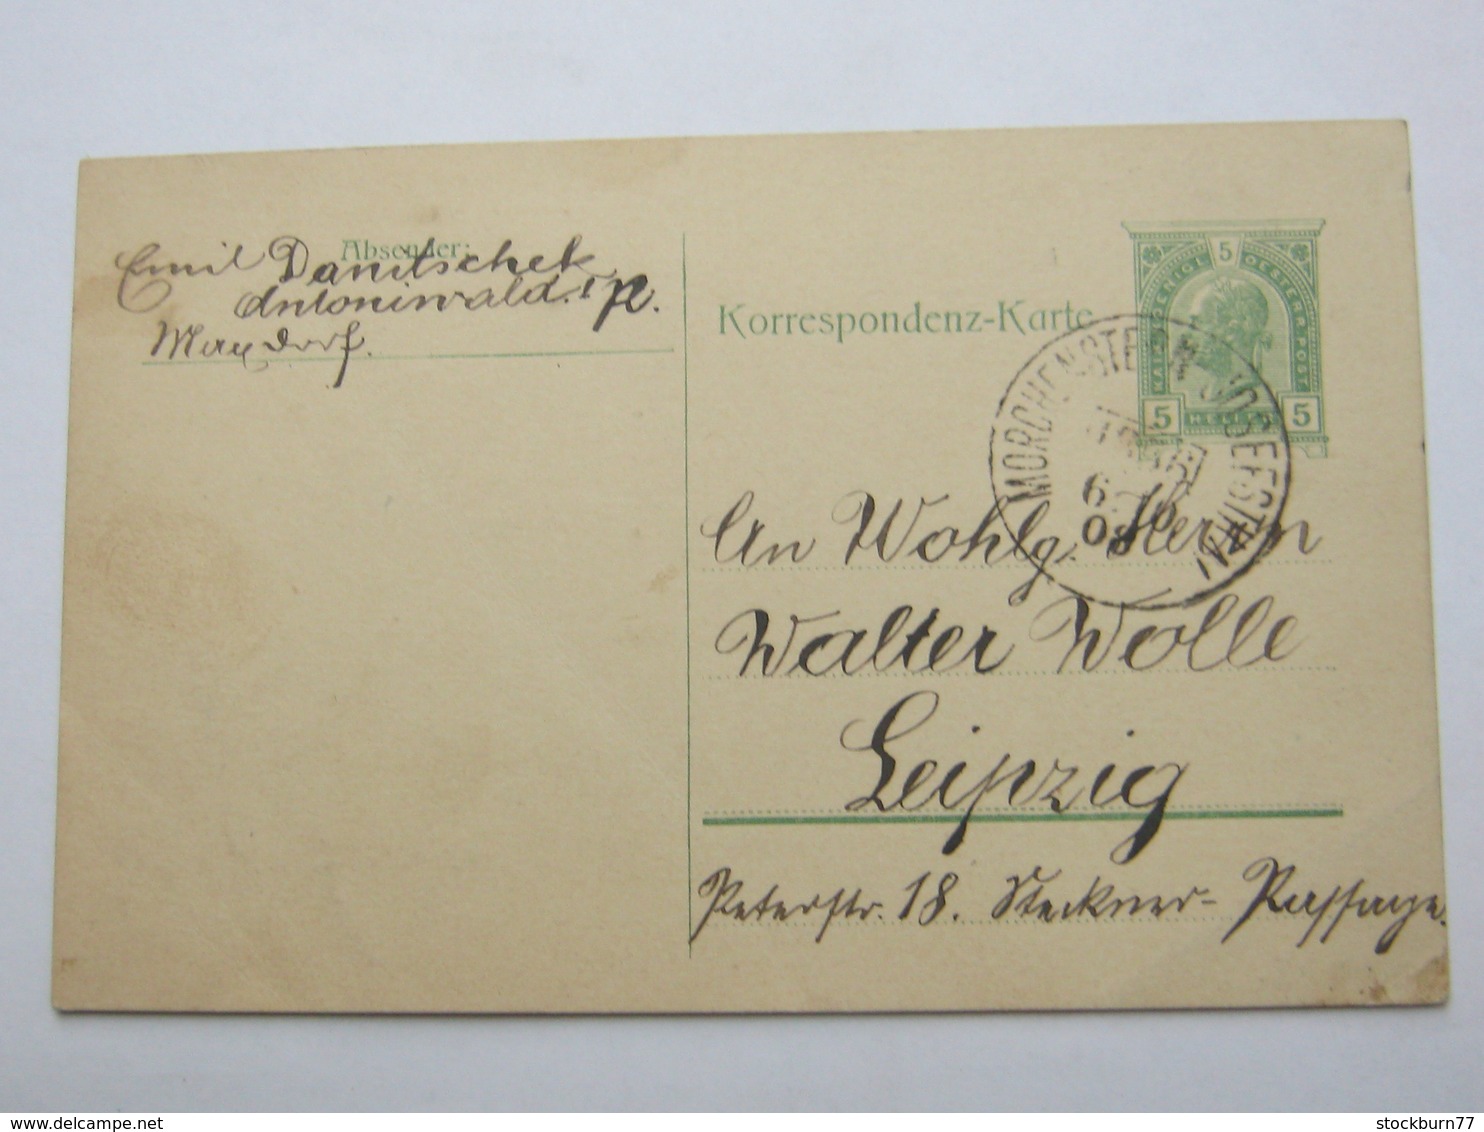 Absender:
Emil Danitschek
Antoniwald.
Maxdorf.
Korrespondenz-Karte
KAIS. KOENIGL. OESTERR. POST
5
5 HELLER 5
MORCHENSTERN-JOSEFSTHAL
6
08
An Wohlg. Herrn
Walter Wolle
Leipzig
Peterstr. 18. Steckner-Passage.
stockburn77